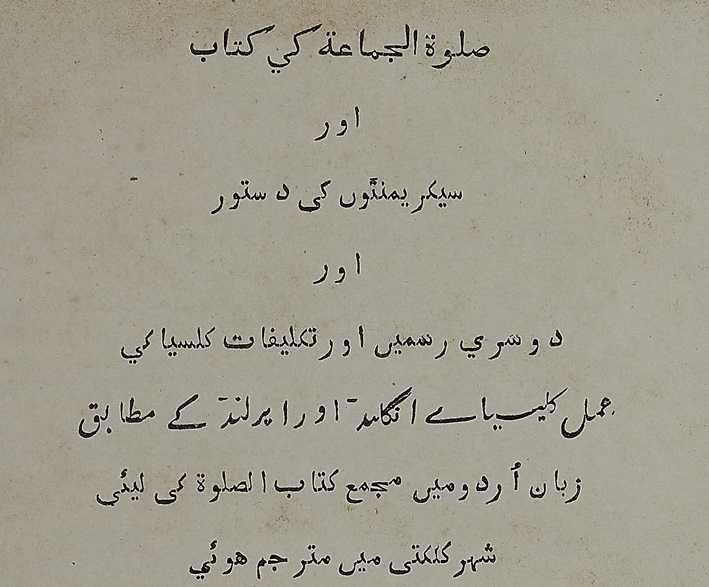 صلوة الجماعة كي كتاب
اور
سيكريمنٹوں كى دستور
اور
دوسري رسميں اور تكليفات كلسيا كي
عمل كليسياے انگلنڈ اور ايرلنڈ كے مطابق
زبان اُردو ميں مجمع كتاب الصلوة كى ليئى
شہر كلكتى ميں مترجم هوئي